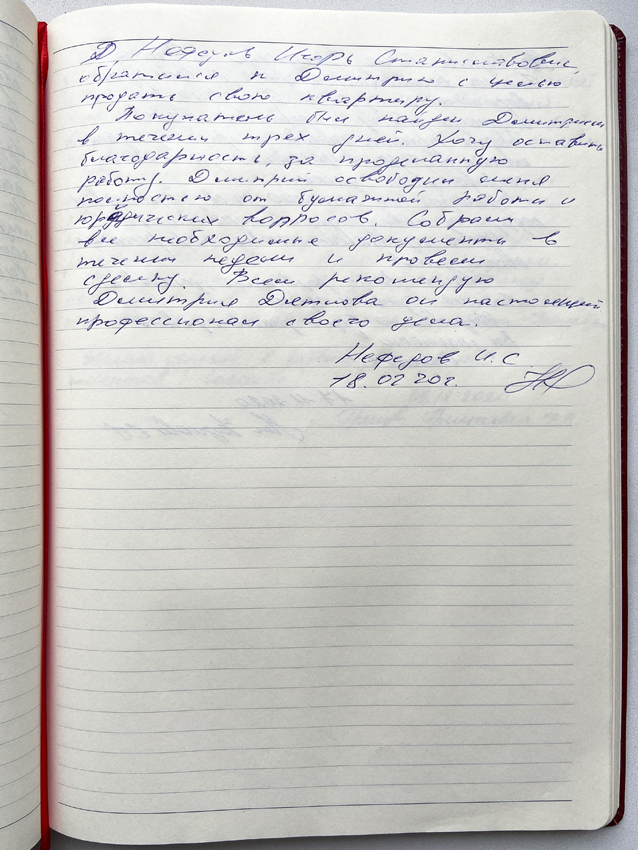 Я Нефедов Игорь Станиславович,
обратился к Дмитрию с целью
продать свою квартиру.
Покупатель был найден Дмитрием
в течении трех дней. Хочу оставить
благодарность, за проделанную
работу. Дмитрий освободил меня
полностью от бумажной работы и
юридических вопросов. Собрали
все необходимые документы в
течении недели и провели
сделку. Всем рекомендую
Дмитрия Дятлова он настоящий
профессионал своего дела.
Нефедов И.С
18.02 20г.